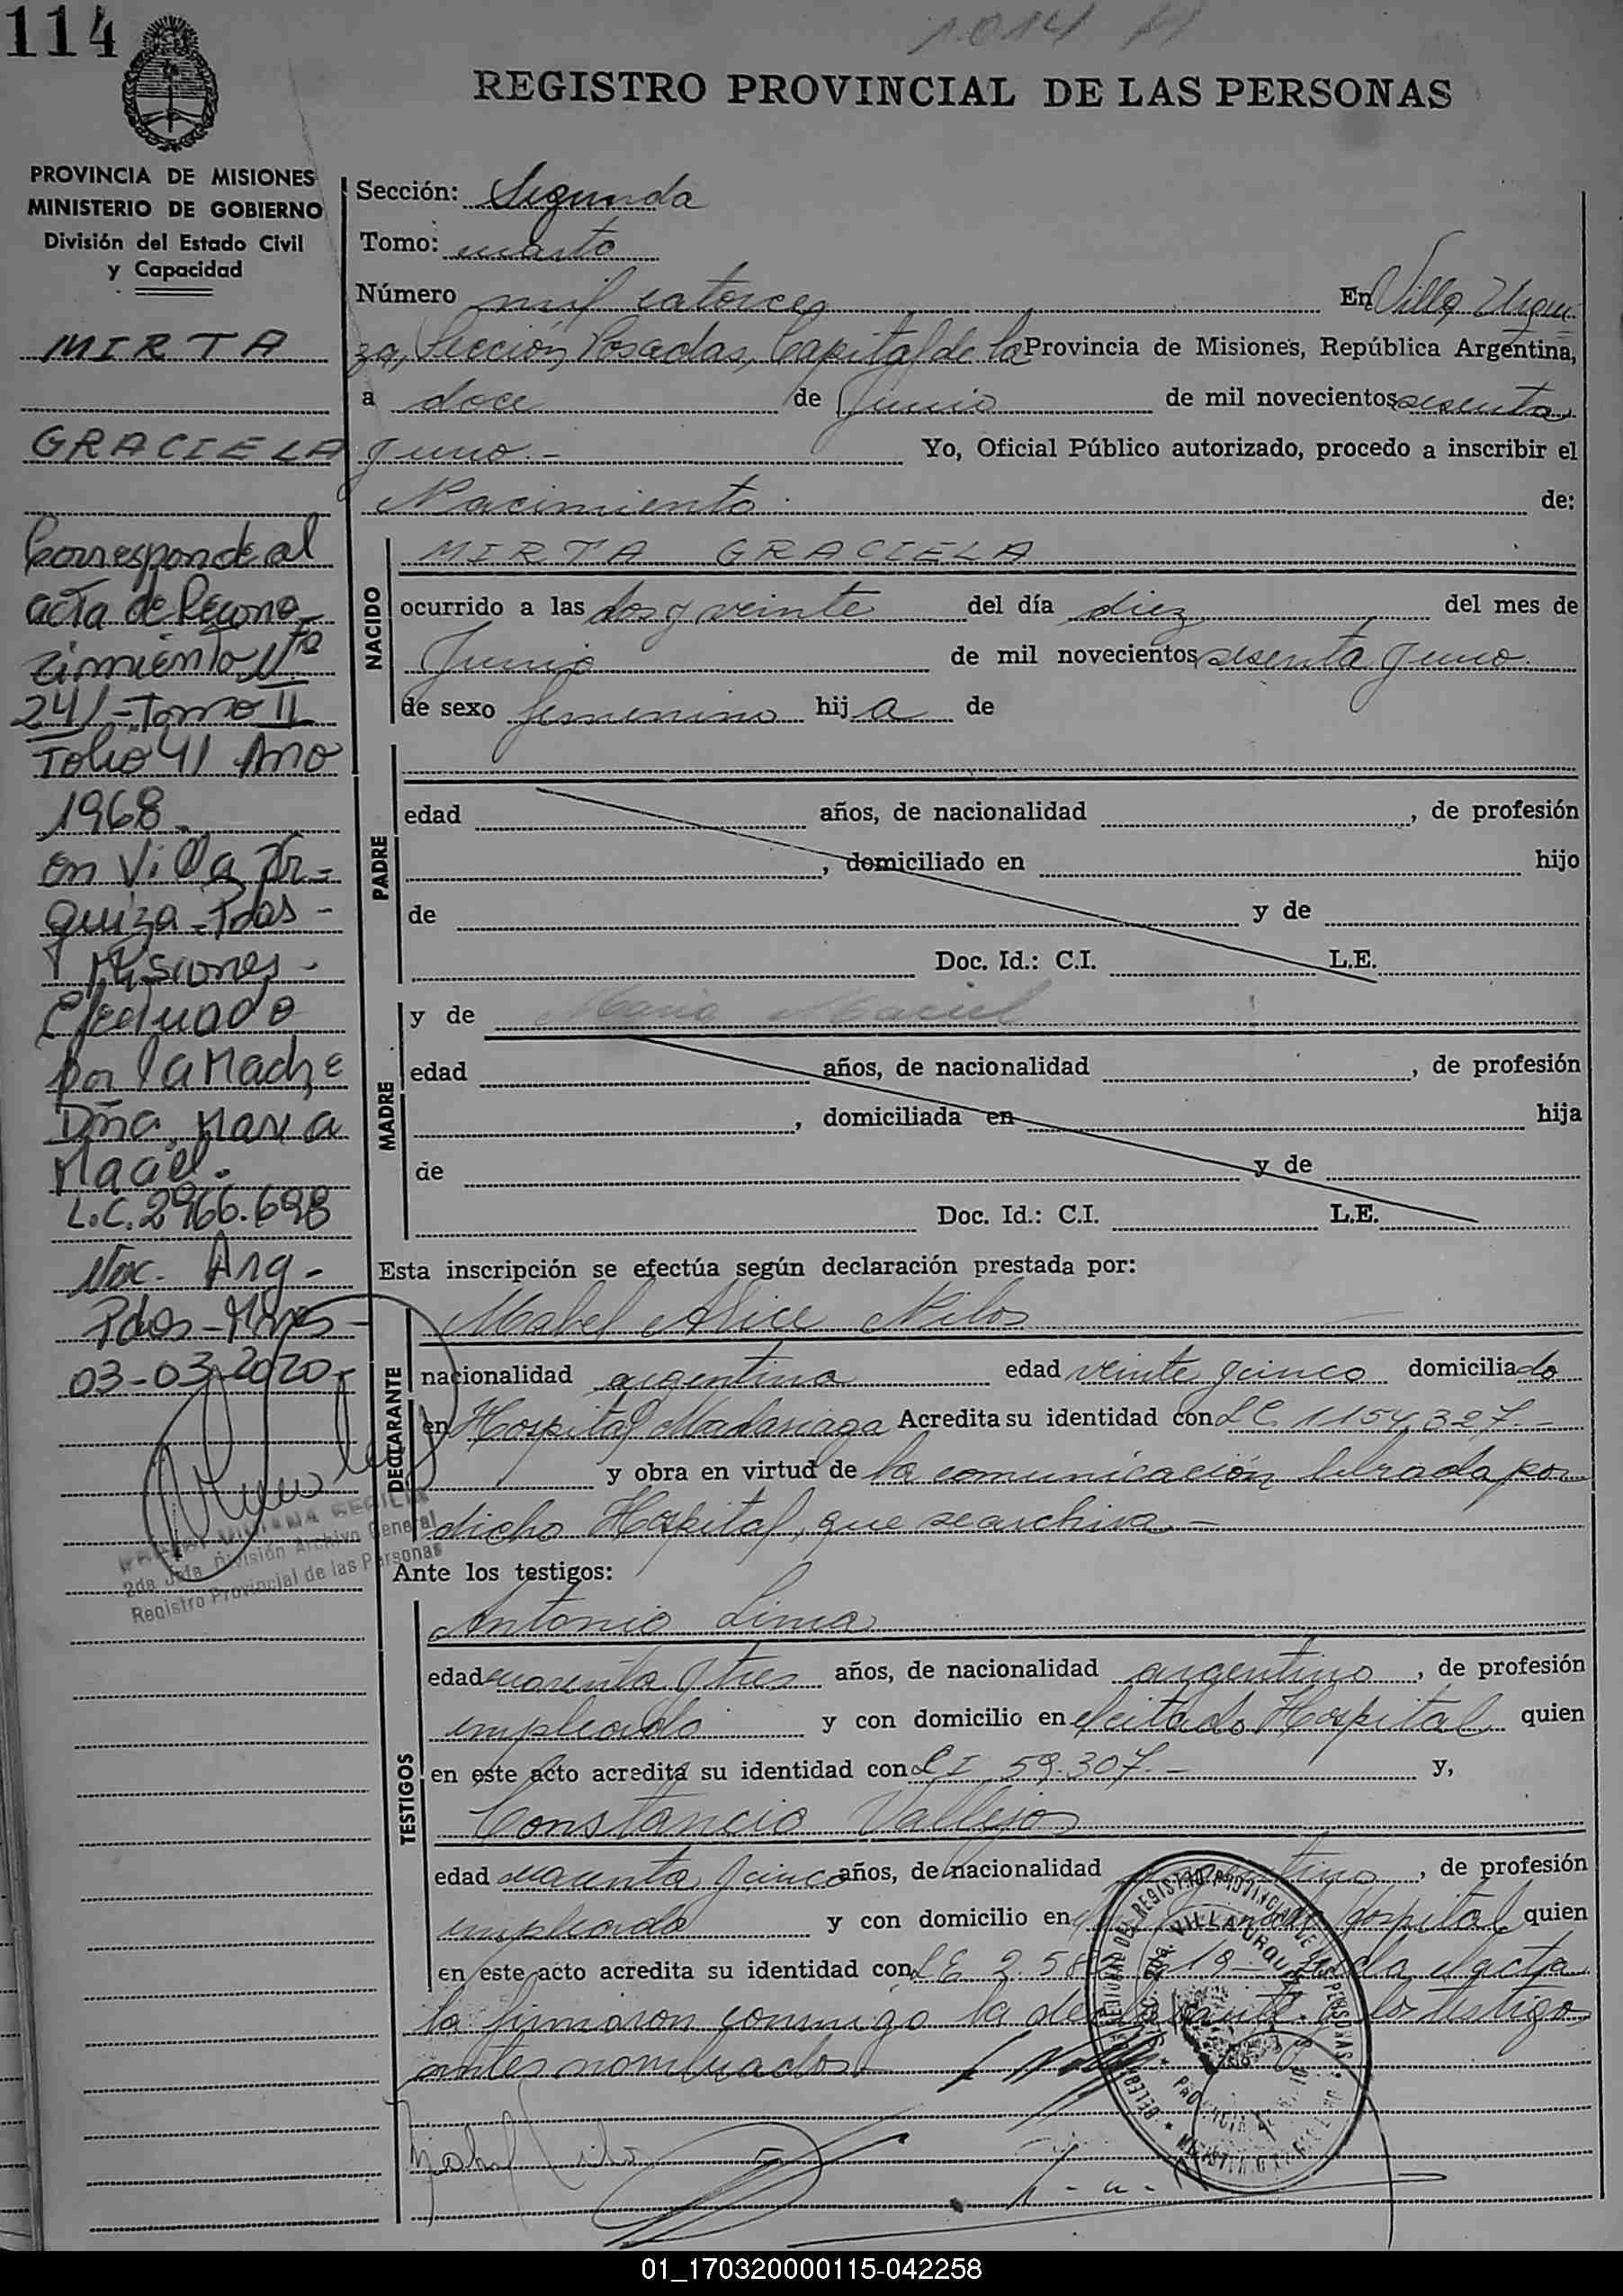 114
1014
REGISTRO PROVINCIAL DE LAS PERSONAS
PROVINCIA DE MISIONES
MINISTERIO DE GOBIERNO
División del Estado Civil
y Capacidad
MIRTA
GRACIELA
Corresponde al
acta de Recono-
cimiento Nro
241-Tomo II
Folio 41 Año
1968.
en Villa Ur-
quiza-Pdas-
Misiones-
Efectuado
por la Madre
Dña. Maria
Maciel.
L.C. 2966.698
Nac. Arg-
Pdas-Mnes-
03-03-2020-
2da Jefa División Archivo General
Registro Provincial de las Personas
Sección: Segunda
Tomo: cuarto
Número mil catorce En Villa Urqui-
za, Sección Posadas, Capital de la Provincia de Misiones, República Argentina,
a doce de Junio de mil novecientos sesenta
y uno.- Yo, Oficial Público autorizado, procedo a inscribir el
Nacimiento de:
NACIDO
MIRTA GRACIELA
ocurrido a las dos y veinte del día diez del mes de
Junio de mil novecientos sesenta y uno.
de sexo femenino hija de
PADRE
edad años, de nacionalidad , de profesión
, domiciliado en hijo
de y de
Doc. Id.: C.I. L.E.
MADRE
y de Maria Maciel
edad años, de nacionalidad , de profesión
, domiciliada en hija
de y de
Doc. Id.: C.I. L.E.
Esta inscripción se efectúa según declaración prestada por:
DECLARANTE
Mabel Alice Nilos
nacionalidad argentina edad veinte y cinco domiciliado
en Hospital Madariaga Acredita su identidad con L.C. 1154,327.-
y obra en virtud de la comunicación librada por
dicho Hospital, que se archiva.-
Ante los testigos:
TESTIGOS
Antonio Lima
edad cuarenta y tres años, de nacionalidad argentino , de profesión
empleado y con domicilio en el citado Hospital quien
en este acto acredita su identidad con C I 59.307.- y,
Constancio Vallejos
edad cuarenta y cinco años, de nacionalidad argentino , de profesión
empleado y con domicilio en Hospital quien
en este acto acredita su identidad con L E 2.58 19- el acta
la firmaron conmigo la declarante y los testigos
antes nombrados.-
VILLA URQUIZA
01_170320000115-042258